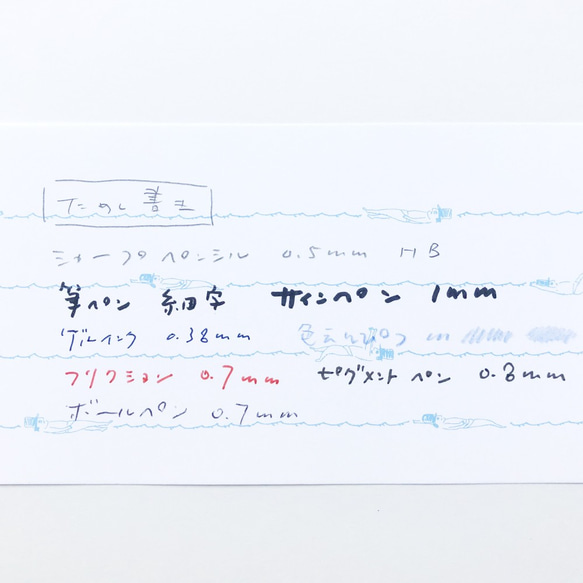 ためし書き
シャープペンシル 0.5mm HB
筆ペン 細字 サインペン 1mm
ゲルインク 0.38mm 色えんぴつ
フリクション 0.7mm ピグメントペン 0.8mm
ボールペン 0.7mm